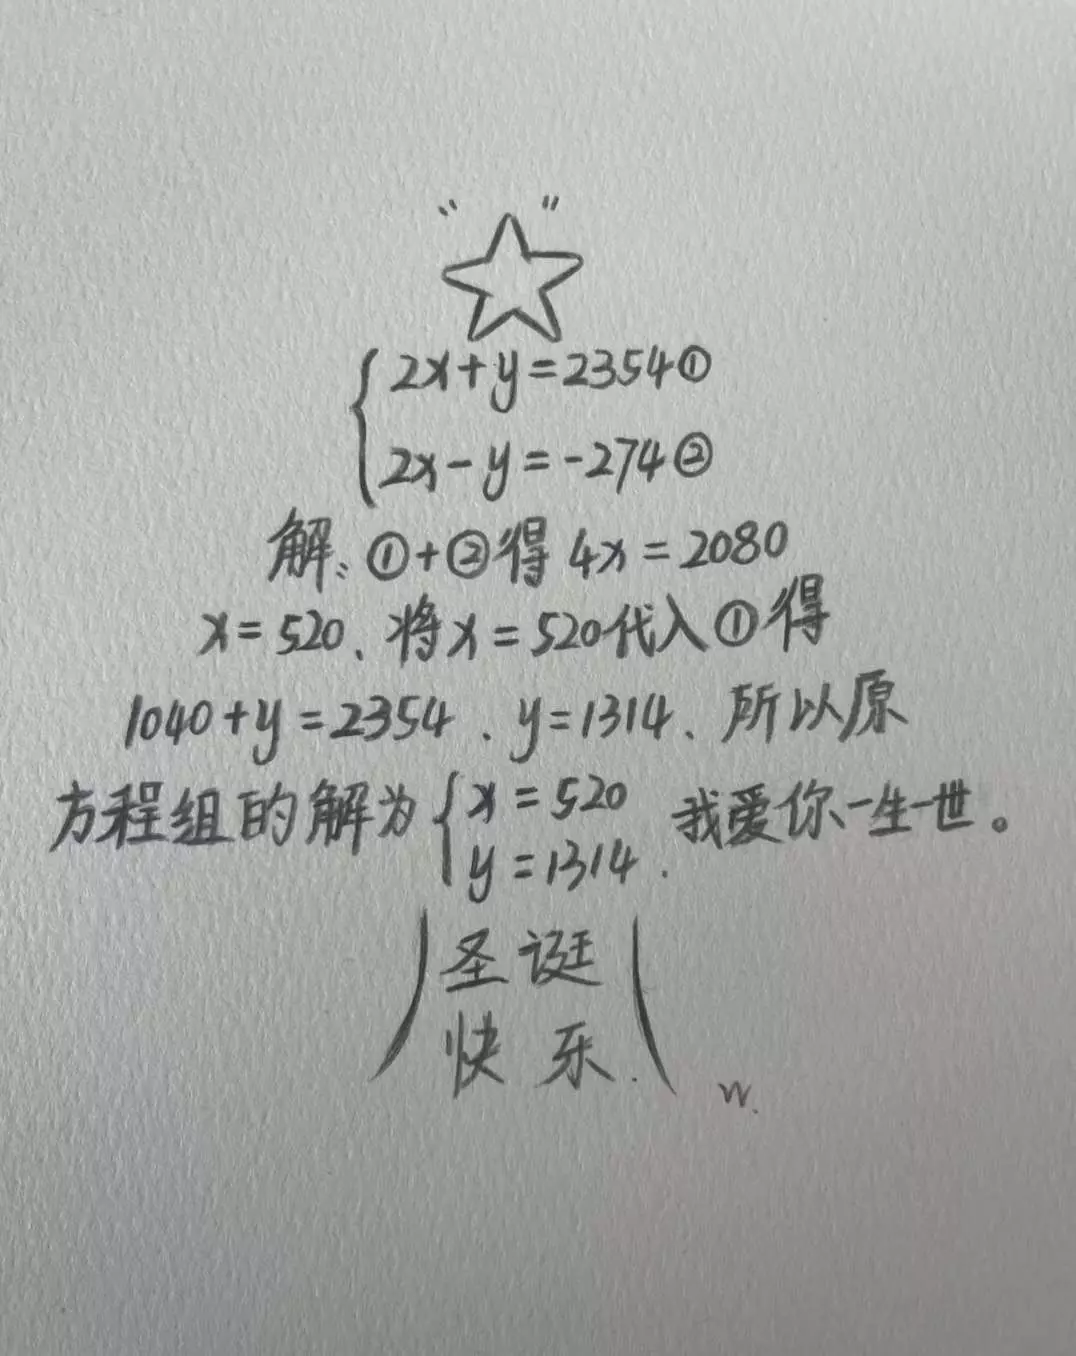 2x+y=2354①
2x-y=-274②
解:①+②得 4x=2080
x=520、将x=520代入①得
1040+y=2354、y=1314、所以原
方程组的解为{x=520
y=1314.我爱你一生一世。
圣诞
快乐.
w.